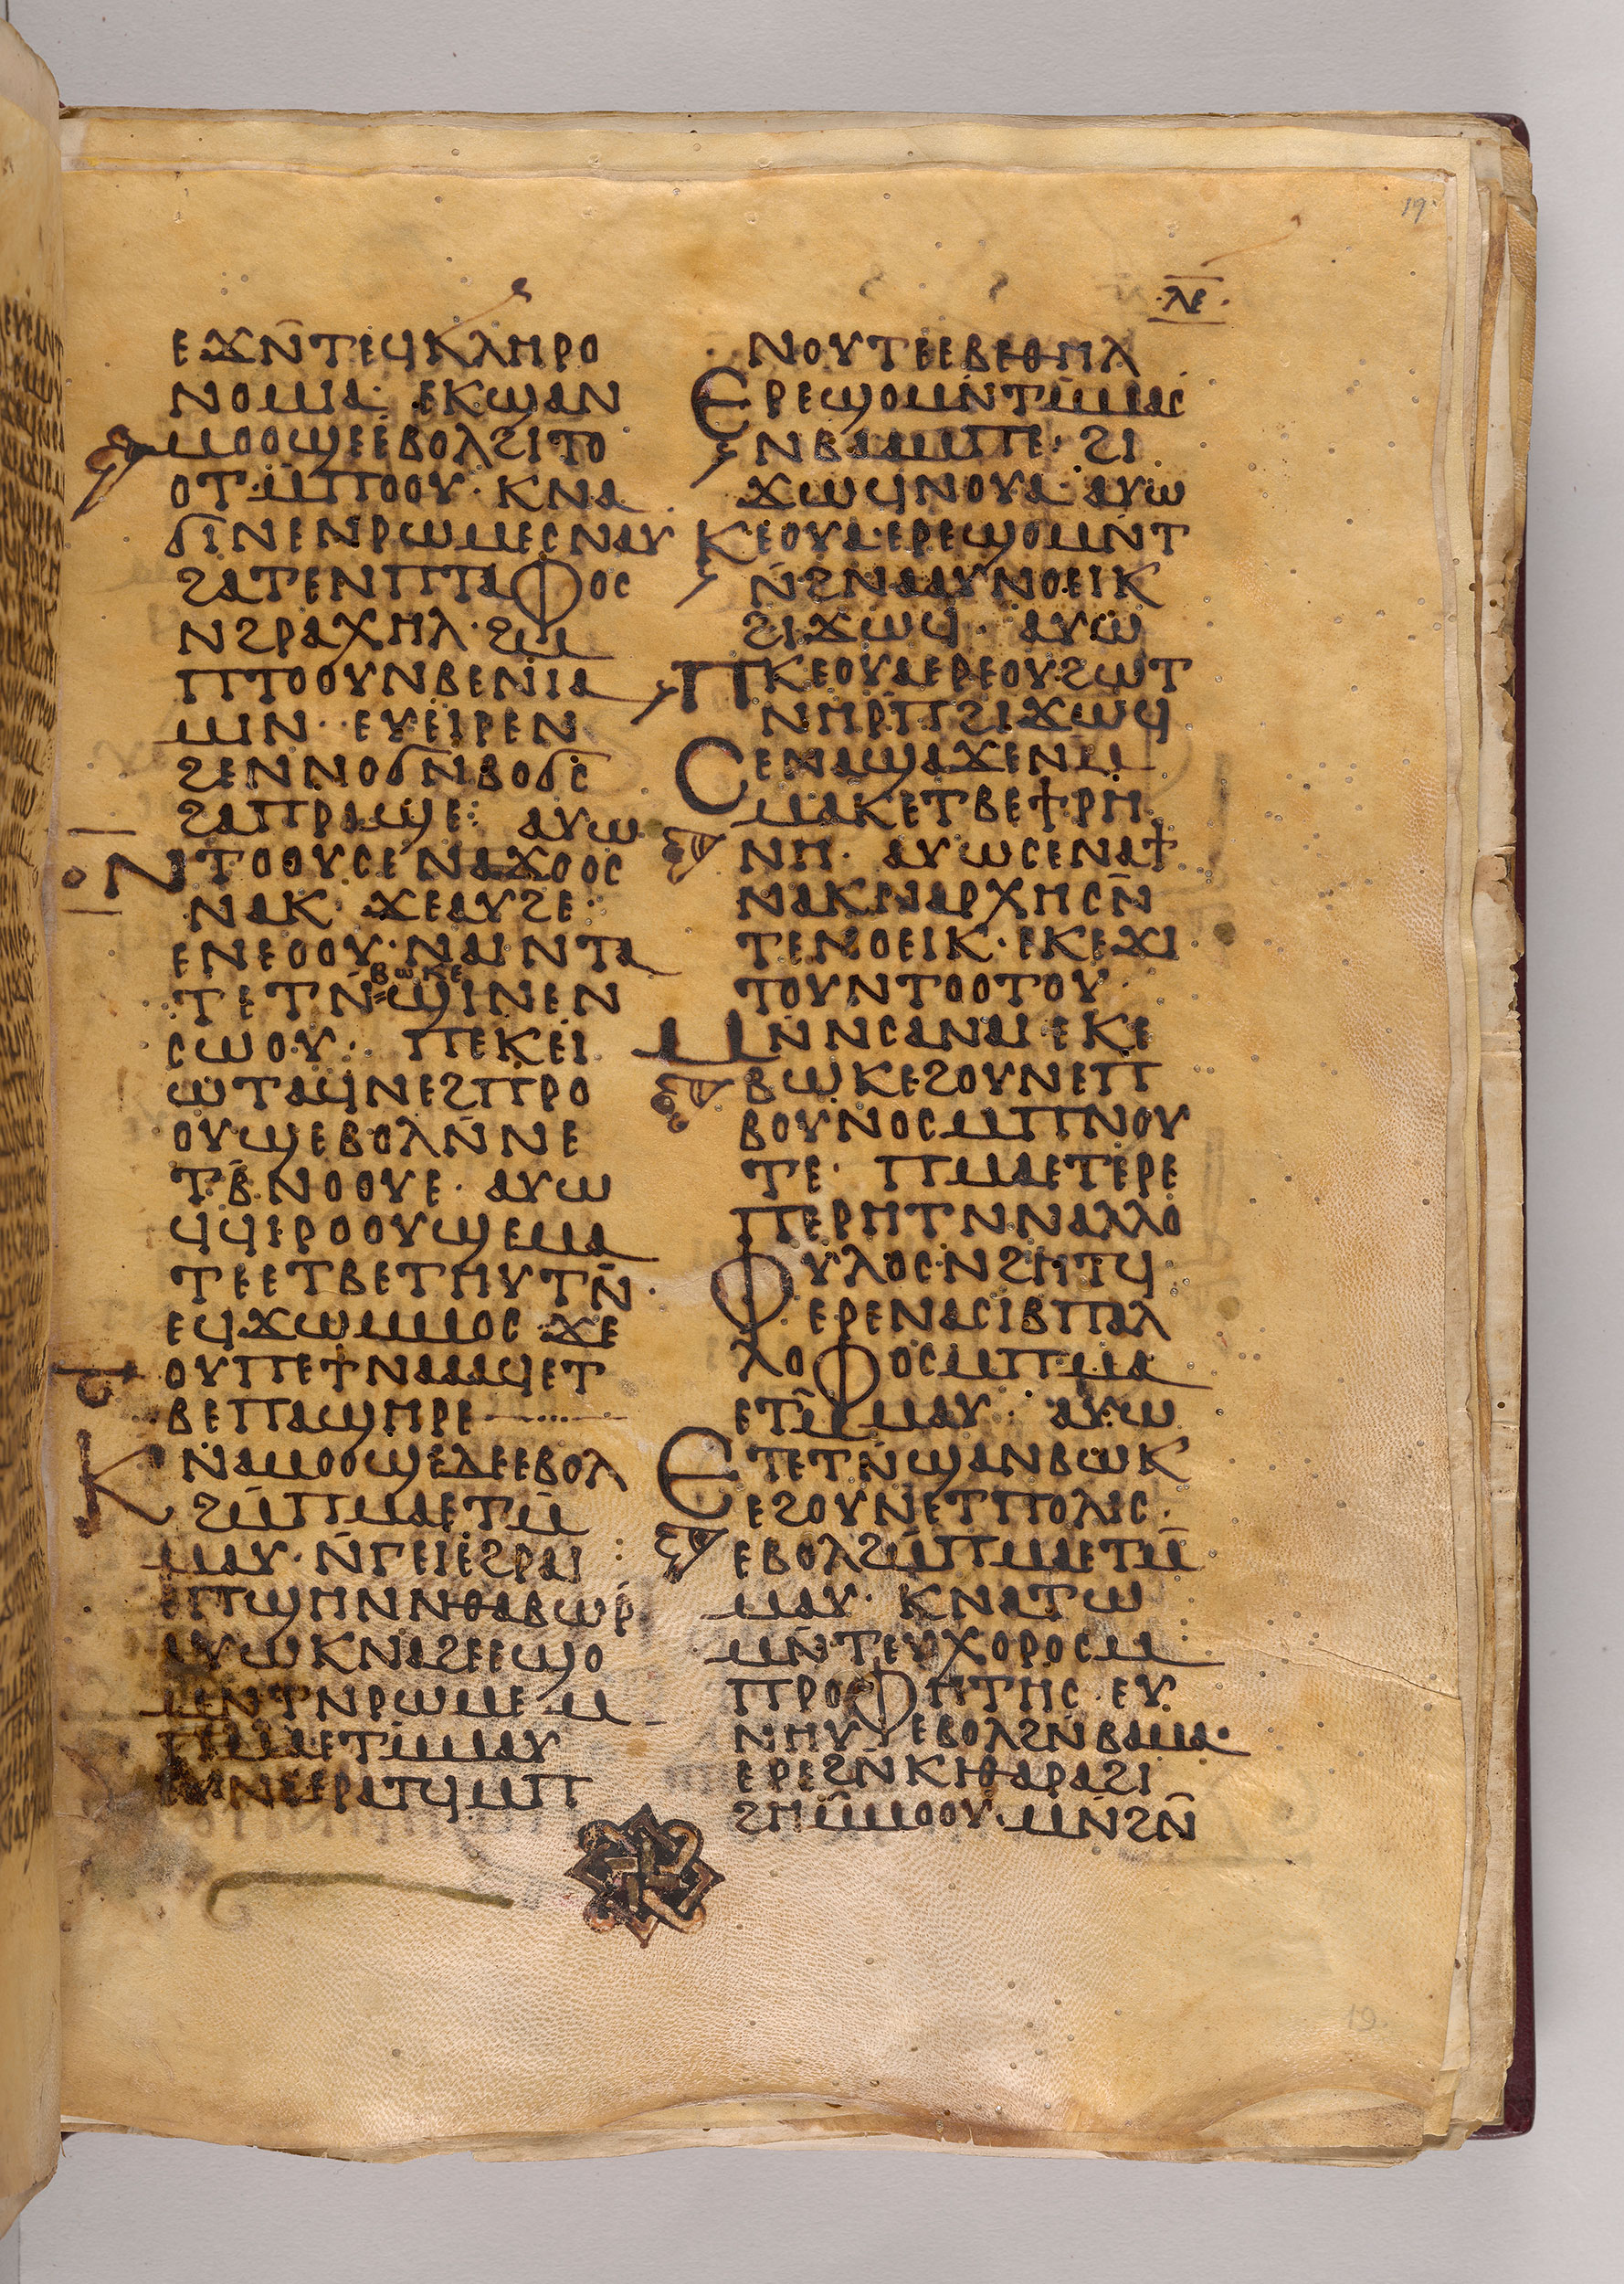 19
ⲗⲉ
ⲉϫⲛ̄ⲧⲉϥⲕⲗⲏⲣⲟ
ⲛⲟⲙⲓⲁ· ⲉⲕϣⲁⲛ
ⲙⲟⲟϣⲉⲉⲃⲟⲗϩⲓⲧⲟ
ⲟⲧ·ⲙ̄ⲡⲟⲟⲩ· ⲕⲛⲁ
ϭⲓⲛⲉⲛⲣⲱⲙⲉⲥⲛⲁⲩ
ϩⲁⲧⲉⲛⲡⲧⲁⲫⲟⲥ
ⲛϩⲣⲁⲭⲏⲗ·ϩⲙ
ⲡⲧⲟⲟⲩⲛⲃⲉⲛⲓⲁ
ⲙⲓⲛ· ⲉⲩⲉⲓⲣⲉⲛ
ϩⲉⲛⲛⲟϭⲛⲃⲟϭⲥ
ϩⲁⲡⲣⲁϣⲉ: ⲁⲩⲱ
ⲛⲧⲟⲟⲩⲥⲉⲛⲁϫⲟⲟⲥ
ⲛⲁⲕ ϫⲉⲁⲩϩⲉ·
ⲉⲛⲉⲟⲟⲩ·ⲛⲁⲓⲛⲧⲁ
ⲃⲱⲕⲉ
ⲧⲉⲧⲛ̄ϣⲓⲛⲉⲛ
ⲥⲱⲟⲩ· ⲡⲉⲕⲉⲓ
ⲱⲧⲁϥⲛⲉϩⲡⲣⲟ
ⲟⲩϣⲉⲃⲟⲗⲛ̄ⲛⲉ
ⲧⲃ̄ⲛⲟⲟⲩⲉ· ⲁⲩⲱ
ϥϥⲓⲣⲟⲟⲩϣⲉⲙⲁ
ⲧⲉⲉⲧⲃⲉⲧⲏⲩⲧⲛ̄·
ⲉϥϫⲱⲙⲙⲟⲥ ϫⲉ
ⲟⲩⲡⲉϯⲛⲁⲁⲁϥⲉⲧ
ⲃⲉⲡⲁϣⲏⲣⲉ
ⲕⲛⲁⲙⲟⲟϣⲉⲇⲉⲉⲃⲟⲗ
ϩⲙ̄ⲡⲙⲁⲉⲧⲙ̄
ⲙⲁⲩ·ⲛ̄ⲅⲉⲓⲉϩⲣⲁⲓ
ⲉⲡϣⲏⲛⲛⲑⲁⲃⲱⲣ
ⲁⲩⲱⲕⲛⲁϩⲉⲉϣⲟ
ⲙⲉⲛⲧⲛⲣⲱⲙⲉ ⲙ
ⲡⲙⲁⲉⲧⲙ̄ⲙⲁⲩ
ⲉⲩⲛⲉⲉⲣⲁⲧϥⲙⲡ
ⲛⲟⲩⲧⲉⲉⲃⲉⲑⲏⲗ
ⲉⲣⲉϣⲟⲙⲛ̄ⲧⲙ̄ⲙⲁⲥ
ⲛⲃⲁⲁⲙⲡⲉ· ϩⲓ
ϫⲱϥⲛⲟⲩⲁ· ⲁⲩⲱ
ⲕⲉⲟⲩⲁ·ⲉⲣⲉϣⲟⲙⲛ̄ⲧ
ⲛ̄ϩⲛⲁⲁⲩⲛⲟⲉⲓⲕ
ϩⲓϫⲱϥ· ⲁⲩⲱ
ⲡⲕⲉⲟⲩⲁⲉⲣⲉⲟⲩϩⲱⲧ
ⲛⲏⲣⲡ̄ϩⲓϫⲱϥ
ⲥⲉⲛⲁϣⲁϫⲉⲛⲙ̄
ⲙⲁⲕⲉⲧⲃⲉϯⲣⲏ
ⲛⲏ· ⲁⲩⲱⲥⲉⲛⲁϯ
ⲛⲁⲕⲛⲁⲣⲭⲏⲥⲛ̄
ⲧⲉⲛⲟⲉⲓⲕ·ⲉⲕⲉϫⲓ
ⲧⲟⲩⲛⲧⲟⲟⲧⲟⲩ·
ⲙⲛ̄ⲛⲥⲁⲛⲁⲓ·ⲉⲕⲉ
ⲃⲱⲕⲉϩⲟⲩⲛⲉⲡ
ⲃⲟⲩⲛⲟⲥⲙⲡⲛⲟⲩ
ⲧⲉ· ⲡⲙⲁⲉⲧⲉⲣⲉ
ⲡⲉⲣⲏⲧⲛⲛⲁⲗⲗⲟ
ⲫⲩⲗⲟⲥ·ⲛϩⲏⲧϥ
ⲉⲣⲉⲛⲁⲥⲓⲃⲡⲁⲗ
ⲗⲟⲫⲟⲥⲙⲡⲙⲁ
ⲉⲧⲙ̄ⲙⲁⲩ· ⲁⲩⲱ
ⲉⲧⲉⲧⲛ̄ϣⲁⲛⲃⲱⲕ
ⲉϩⲟⲩⲛⲉⲧⲡⲟⲗⲓⲥ·
ⲉⲃⲟⲗϩⲙ̄ⲡⲙⲁⲉⲧⲙ̄
ⲙⲁⲩ· ⲕⲛⲁⲧⲱ
ⲙⲛ̄ⲧⲉⲩⲭⲟⲣⲟⲥⲙ
ⲡⲣⲟⲫⲏⲧⲏⲥ·ⲉⲩ
ⲛⲏⲩ ⲉⲃⲟⲗϩⲛ̄ⲃⲁⲙⲁ·
ⲉⲣⲉϩⲛ̄ⲕⲓⲑⲁⲣⲁϩⲓ
ϩⲏⲙ̄ⲙⲟⲟⲩ·ⲙⲛ̄ϩⲛ̄
19